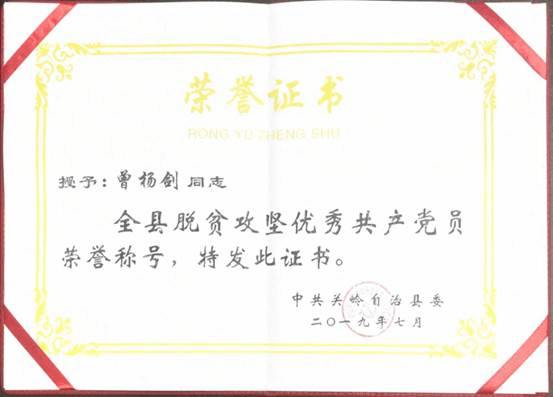 荣誉证书
RONG YU ZHENG SHU
授予:曾杨剑同志
全县脱贫攻坚优秀共产党员
荣誉称号,特发此证书。
中共关岭自治县委
二〇一九年七月